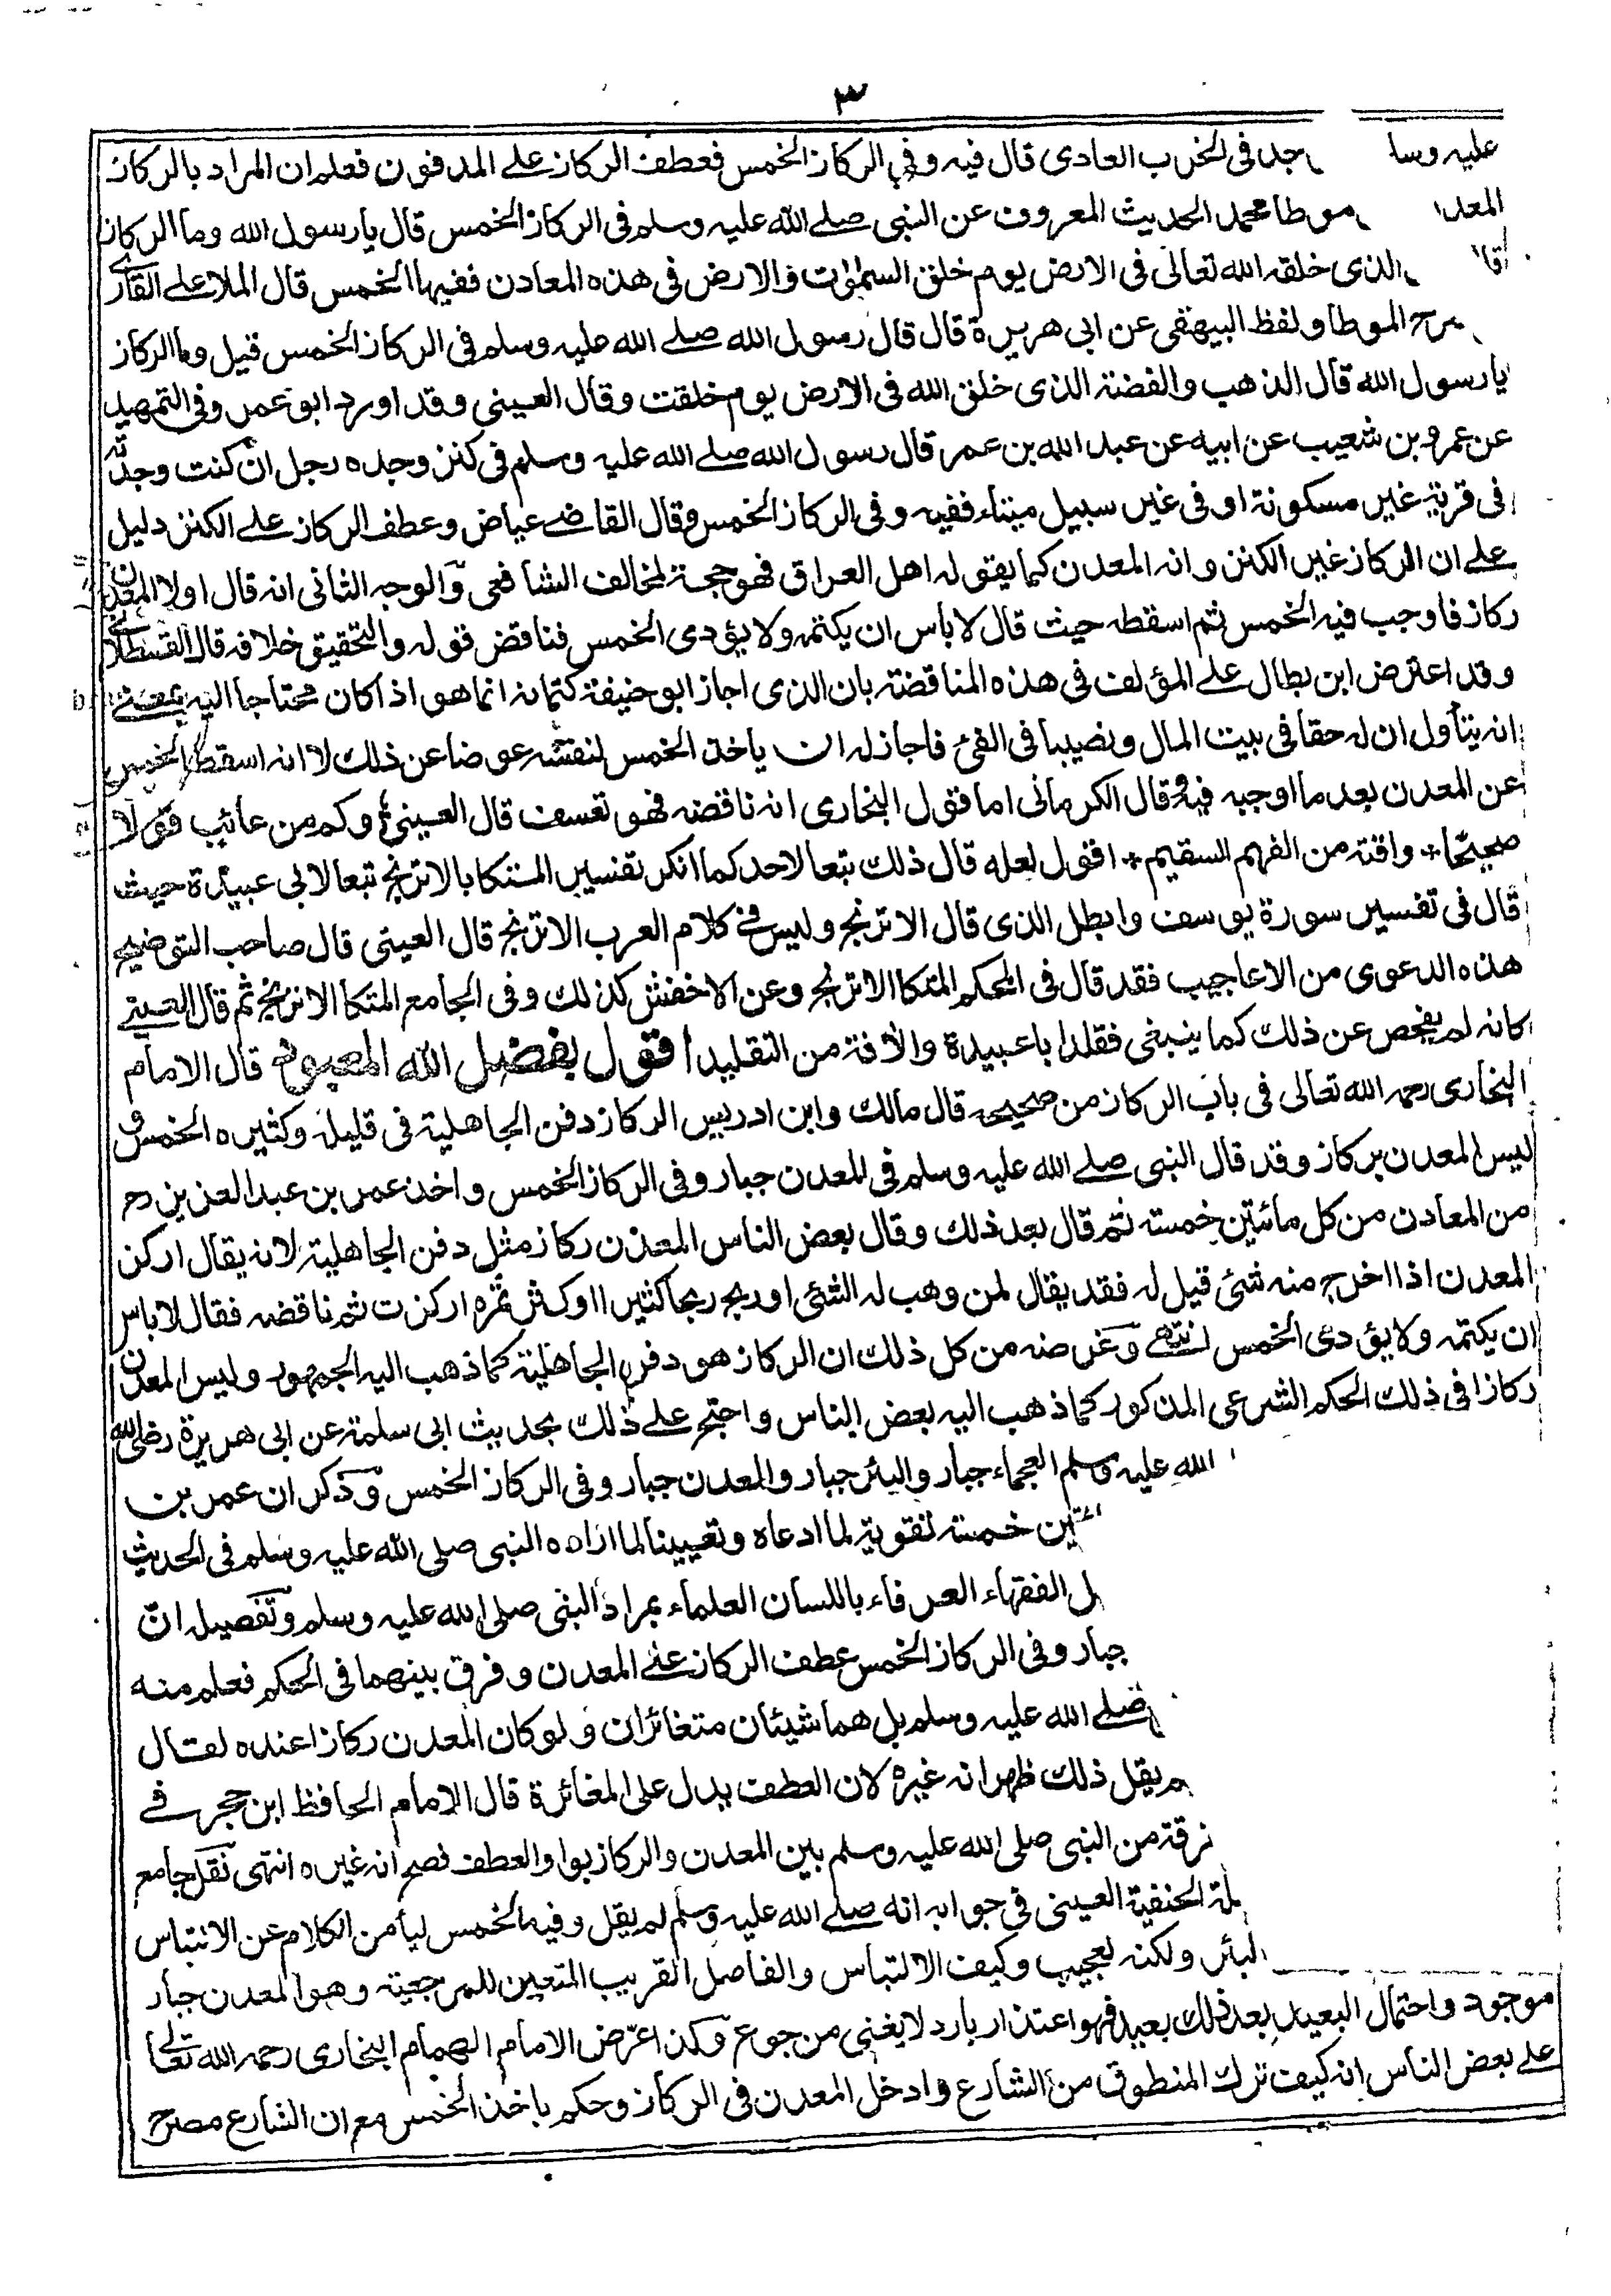 ٣
عليه وسا جد فى الخرب العادى قال فيه وفى الركاز الخمس فعطف الركاز على المدفون فعلم ان المراد بالركاز
المعد موطا محمد الحديث المعروف عن النبى صلے الله عليه وسلم فى الركاز الخمس قال يا رسول الله وما الركاز
قا الذى خلقه الله تعالى فى الارض يوم خلق السموٰت والارض فى هذه المعادن ففيها الخمس قال الملا على القارى
رح الموطا ولفظ البيهقى عن ابى هريرة قال قال رسول الله صلے الله عليه وسلم فى الركاز الخمس قيل وما الركاز
يا رسول الله قال الذهب والفضة الذى خلق الله فى الارض يوم خلقت وقال العينى وقد اورد ابو عمر فى التمهيد
عن عمرو بن شعيب عن ابيه عن عبد الله بن عمر قال رسول الله صلے الله عليه وسلم فى كنز وجده رجل ان كنت وجدته
فى قرية غير مسكونة او فى غير سبيل ميتاء ففيه وفى الركاز الخمس وقال القاضے عياض وعطف الركاز علے الكنز دليل
علے ان الركاز غير الكنز وانه المعدن كما يقوله اهل العراق فهو حجة لمخالف الشافعى والوجه الثانى انه قال اولا المعدن
ركاز فاوجب فيه الخمس ثم اسقطه حيث قال لا باس ان يكتمه ولا يؤدى الخمس فناقض قوله والتحقيق خلافه قال القسطلانے
وقد اعترض ابن بطال علے المؤلف فى هذه المناقضة بان الذى اجاز ابو حنيفة كتمانه انما هو اذا كان محتاجا اليه بمعنے
انه يتأول ان له حقا فى بيت المال ونصيبا فى الفئ فاجاز له ان ياخذ الخمس لنفسه عوضا عن ذلك لا انه اسقط الخمس
عن المعدن بعد ما اوجبه فيه وقال الكرمانى اما قول البخارى انه ناقضه فهو تعسف قال العينى ع وكم من عائب قولا
صحيحا * وافته من الفهم السقيم * اقول لعله قال ذلك تبعا لاحد كما انكر تفسير المتكا بالاترنج تبعا لابى عبيدة حيث
قال فى تفسير سورة يوسف وابطل الذى قال الاترنج وليس فے كلام العرب الاترنج قال العينى قال صاحب التوضيح
هذه الدعوى من الاعاجيب فقد قال فى المحكم المتكا الاترنج وعن الاخفش كذلك وفى الجامع المتكا الاترنج ثم قال العينے
كانه لم يفحص عن ذلك كما ينبغى فقلد ابا عبيدة والافة من التقليد اقول بفضل الله المعبود قال الامام
البخارى رحمه الله تعالى فى باب الركاز من صحيحه قال مالك وابن ادريس الركاز دفن الجاهلية فى قليله وكثيره الخمس و
ليس المعدن بركاز وقد قال النبى صلے الله عليه وسلم فى المعدن جبار وفى الركاز الخمس واخذ عمر بن عبد العزيز رح
من المعادن من كل مائتين خمسته ثم قال بعد ذلك وقال بعض الناس المعدن ركاز مثل دفن الجاهلية لانه يقال اركز
المعدن اذا اخرج منه شئ قيل له فقد يقال لمن وهب له الشئ او ربح ربحا كثيرا او كثر ثمره اركزت ثم ناقضه فقال لا باس
ان يكتمه ولا يؤدى الخمس انتهے وغرضه من كل ذلك ان الركاز هو دفن الجاهلية كما ذهب اليه الجمهور وليس المعدن
ركازا فى ذلك الحكم الشرعى المذكور كما ذهب اليه بعض الناس واحتج علے ذلك بحديث ابى سلمة عن ابى هريرة رضى الله
الله عليه وسلم العجماء جبار والبئر جبار والمعدن جبار وفى الركاز الخمس وذكر ان عمر بن
ئتين خمسته تقوية لما ادعاه وتعيينا لما اراده النبى صلى الله عليه وسلم فى الحديث
ل الفقهاء العرفاء باللسان العلماء بمراد النبى صلى الله عليه وسلم وتفصيله ان
جبار وفى الركاز الخمس عطف الركاز علے المعدن وفرق بينهما فى الحكم فعلم منه
صلے الله عليه وسلم بل هما شيئان متغائران ولو كان المعدن ركازا عنده لقال
م يقل ذلك ظهر انه غيره لان العطف يدل على المغائرة قال الامام الحافظ ابن حجر فے
رقة من النبى صلى الله عليه وسلم بين المعدن والركاز بواو العطف فصح انه غيره انتهى نقل جامع
لة الحنفية العينى فى جوابه انه صلے الله عليه وسلم لم يقل وفيه الخمس ليأمن الكلام عن الالتباس
البئر ولكنه لعجيب وكيف الالتباس والفاصل القريب المتعين للمرجعية وهو المعدن جبار
موجود واحتمال البعيد بعد ذلك بعيد فهو اعتذار بارد لا يغنى من جوع وكذا عرض الامام الهمام البخارى رحمه الله تعالى
علے بعض الناس انه كيف ترك المنطوق من الشارع وادخل المعدن فى الركاز وحكم باخذ الخمس مع ان الشارع مصرح